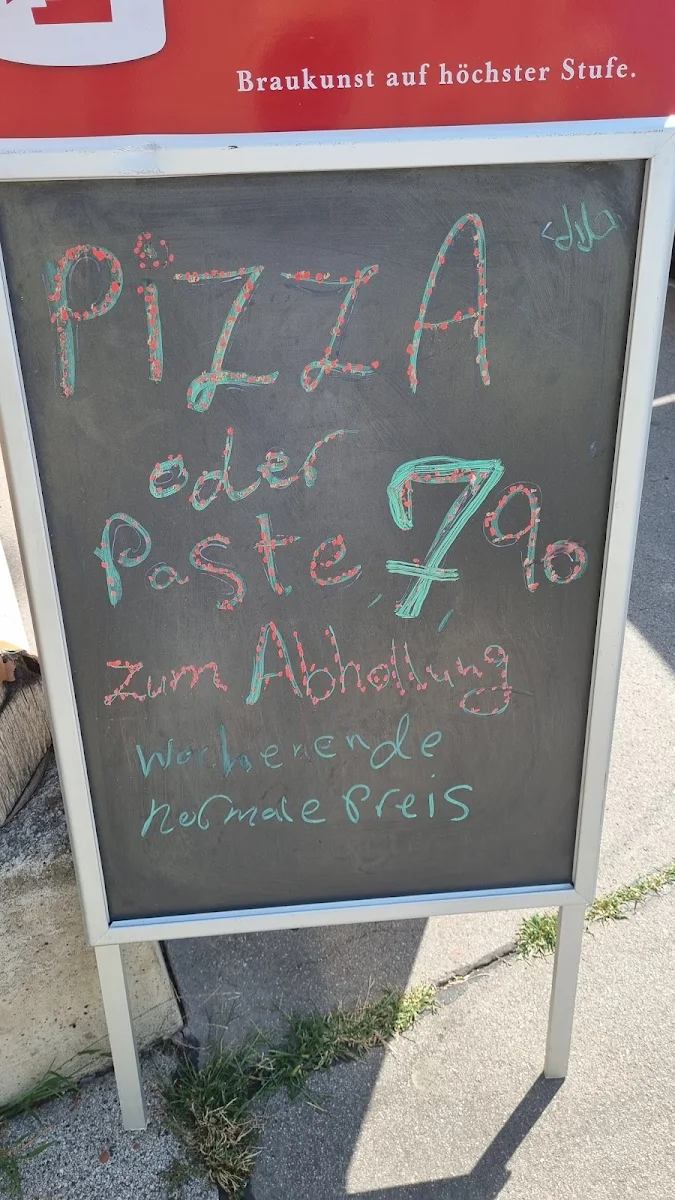 Braukunst auf höchster Stufe.
PiZZA
oder
Paste 7%
zum Abhollung
Wochenende
normale Preis